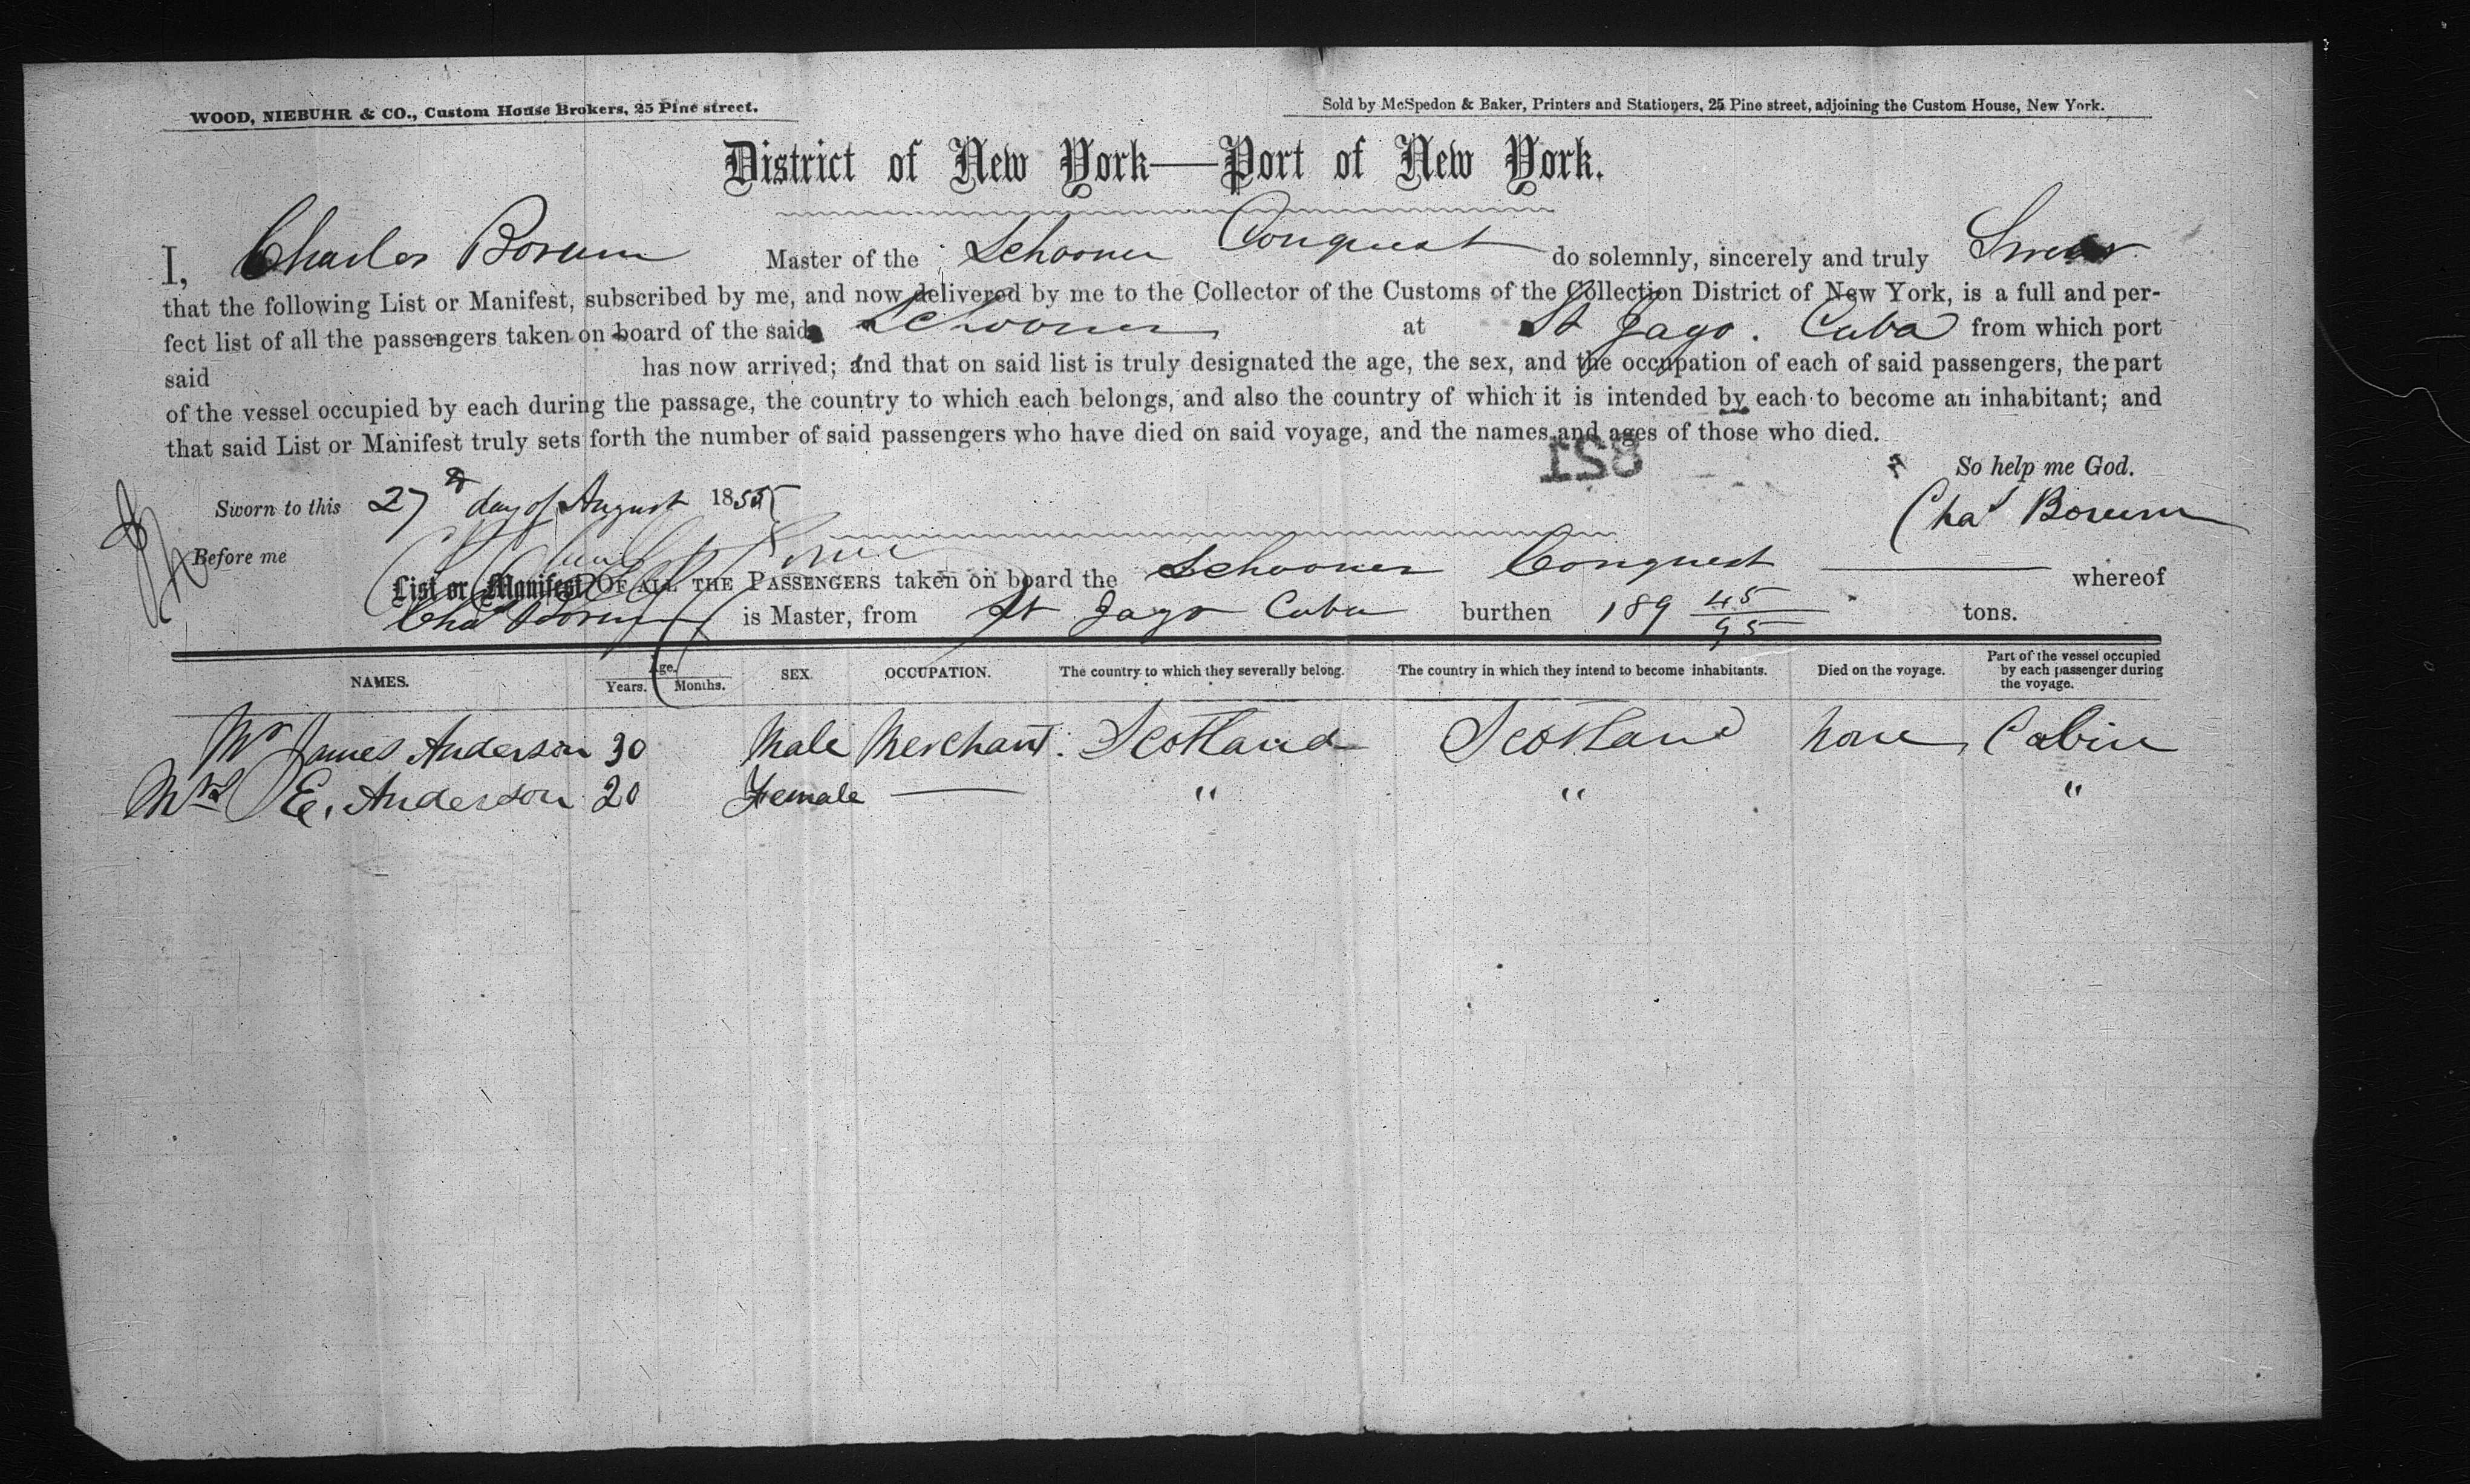 WOOD, NIEBUHR & CO., Custom House Brokers, 25 Pine street.
Sold by McSpedon & Baker, Printers and Stationers, 25 Pine street, adjoining the Custom House, New York.
District of New York—Port of New York.
I, Charles Borum Master of the Schooner Conquest do solemnly, sincerely and truly Swear
that the following List or Manifest, subscribed by me, and now delivered by me to the Collector of the Customs of the Collection District of New York, is a full and per-
fect list of all the passengers taken on board of the said Schooner at St Jago. Cuba from which port
said has now arrived; and that on said list is truly designated the age, the sex, and the occupation of each of said passengers, the part
of the vessel occupied by each during the passage, the country to which each belongs, and also the country of which it is intended by each to become an inhabitant; and
that said List or Manifest truly sets forth the number of said passengers who have died on said voyage, and the names and ages of those who died.
821
So help me God.
Sworn to this 27th day of August 1855
Chas Borum
Before me
List or Manifest OF ALL THE PASSENGERS taken on board the Schooner Conquest whereof
Chas Borum is Master, from St Jago Cuba burthen 189 45/95 tons.
NAMES. Age. Years. Months. SEX. OCCUPATION. The country to which they severally belong. The country in which they intend to become inhabitants. Died on the voyage. Part of the vessel occupied by each passenger during the voyage.
Mr James Anderson 30 Male Merchant. Scotland Scotland none Cabin
Mrs E. Anderson 20 Female — " " "